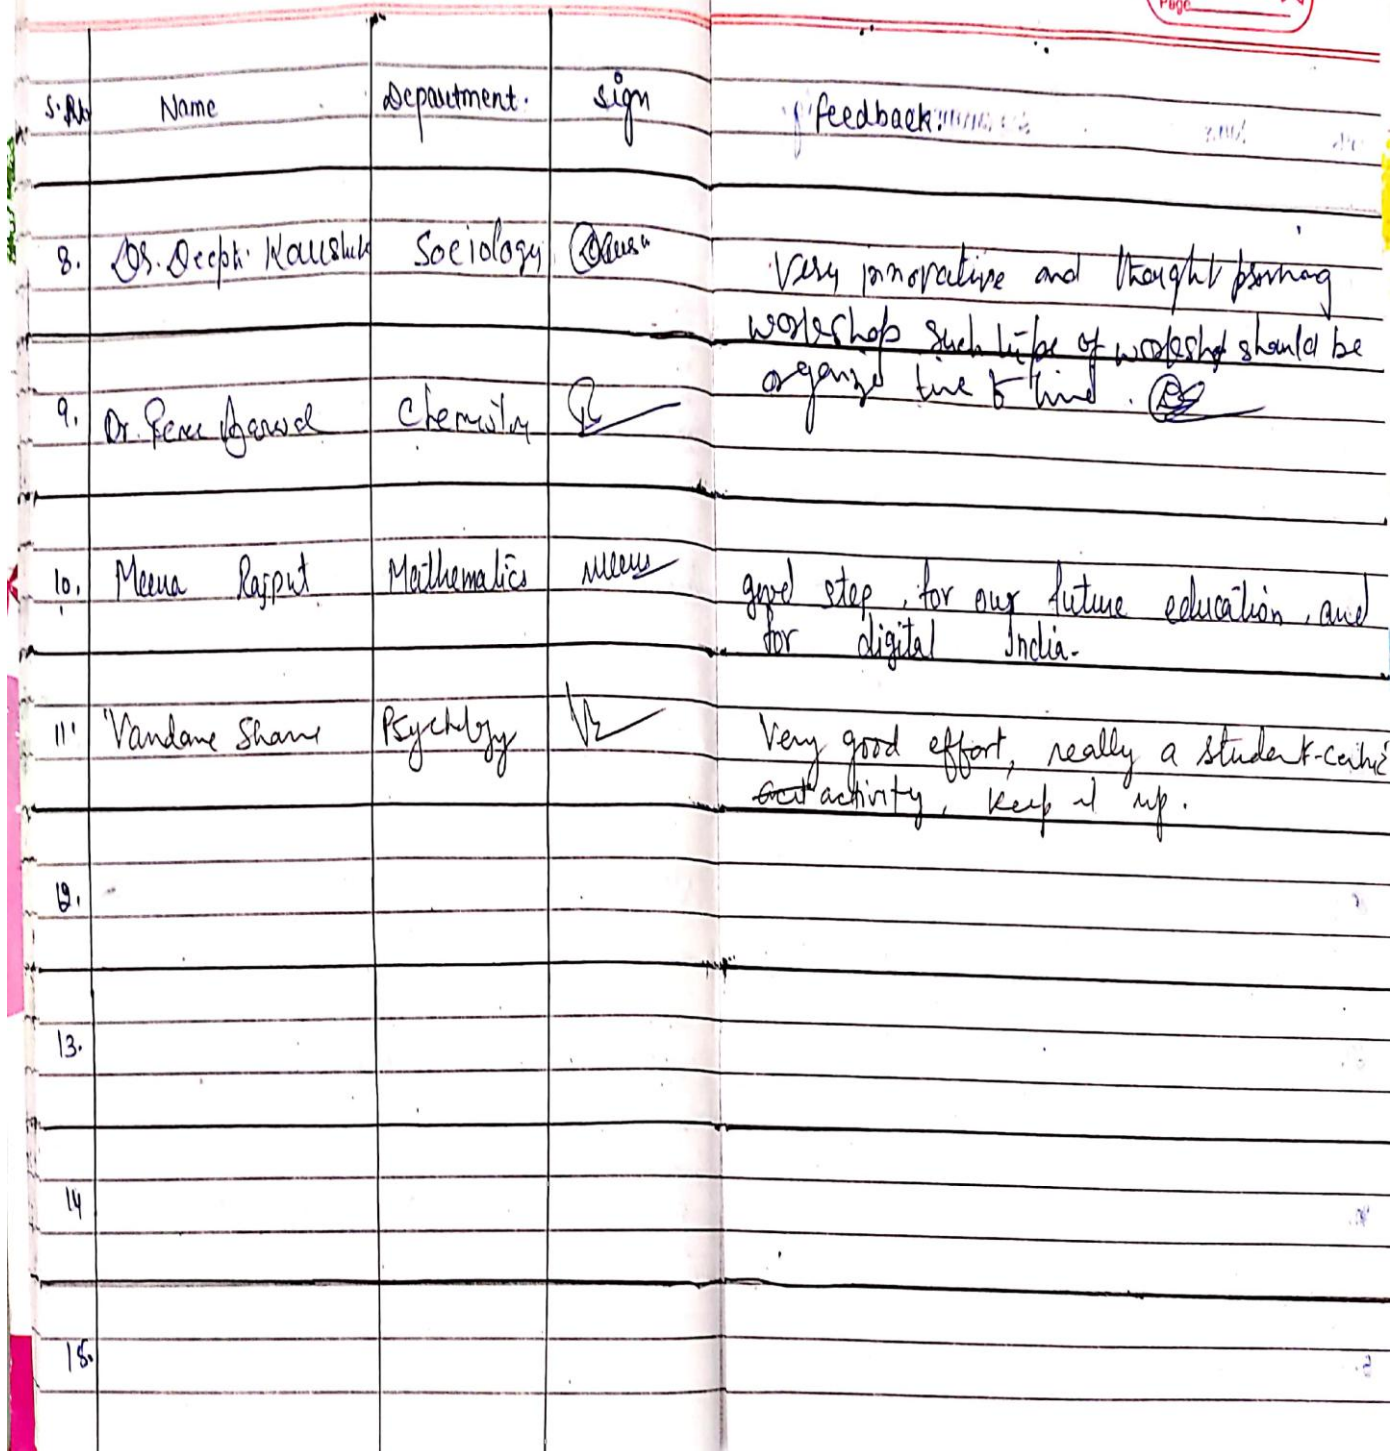 Page
S.No. Name Department. Sign feedback.
8. Dr. Deepti Kaushik Sociology
Very innovative and thought
workshop such type of workshop should be
organize time to time.
9. Dr. Renu Agarwal Chemistry
10. Meena Rajput Mathematics Meena
good step, for our future education, and
for digital India.
11. Vandana Psychology
Very good effort, really a student-centric
activity, keep it up.
12.
13.
14
15.